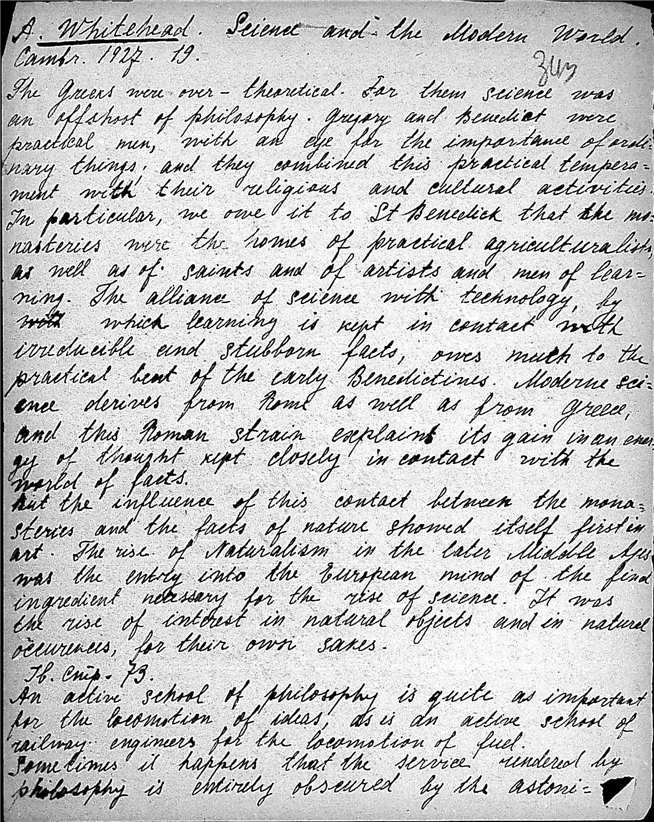 A. Whitehead. Science and the Modern World.
Cambr. 1927. 19.
The Greeks were over-theoretical. For them science was
an offshost of philosophy. Gregory and Benedict were
practical men, with an eye for the importance of ordi-
nary things; and they combined this practical tempera-
ment with their religious and cultural activities.
In particular, we owe it to St Benedick that the mo-
nasteries were the homes of practical agriculturalists,
as well as of saints and of artists and men of lear=
ning. The alliance of science with technology, by
which learning is kept in contact with
irreducible and stubborn facts, owes much to the
practical bent of the early Benedictines. Moderne sci=
ence derives from Rome as well as from Greece,
and this Roman strain explains its gain in an ener-
gy of thought kept closely in contact with the
world of facts.
But the influence of this contact between the mona=
steries and the facts of nature showed itself first in
art. The rise of Naturalism in the later Middle Ages
was the entry into the European mind of the final
ingredient necessary for the rise of science. It was
the rise of interest in natural objects and in natural
occurences, for their own sakes.
73.
An active school of philosophy is quite as important
for the locomotion of ideas, as is an active school of
railway engineers for the locomotion of fuel.
Sometimes it happens that the service rendered by
philosophy is entirely obscured by the astoni=